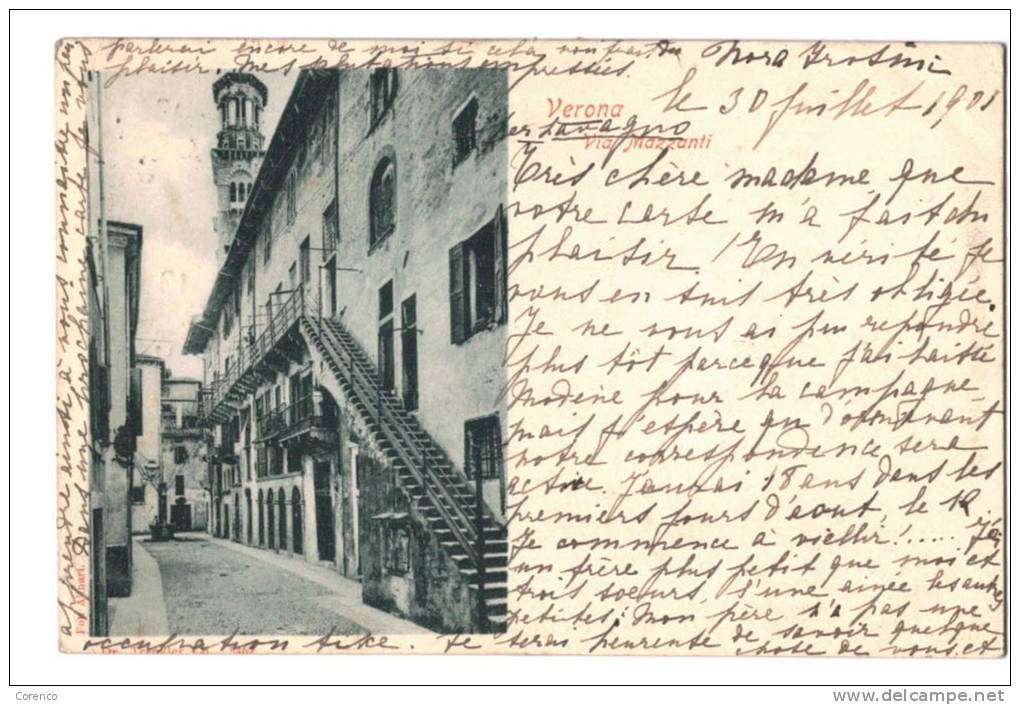 Verona
Via Mazzanti
per Lavagno
le 30 Juillet 1901
Très chère madame, que
votre carte m'a fait du
plaisir! En vérité je
vous en suis très obligée.
Je ne vous ai pu repondre
plus tôt parceque j'ai laissé
Modène pour la campagne
mais j'espère qu'd'or
notre correspondence sera
active. J'aurai 18 ans dans les
premiers jours d'aout, le 12
Je commence à vieillir!..... J'ai
un frère plus petit que moi et
trois soeurs, l'une ainée les autres
petites; mon père n'a pas une
occupation fixe. Je serai heureuse de savoir quelque
chose de vous et
apprendre ainsi à vous connaitre un peu.
Dans une prochaine carte je vous
parlerai encore de moi si cela vous fait du
plaisir. Mes salutations empressées.
Nora
Fot. Alinari.
Corenco
www.delcampe.net